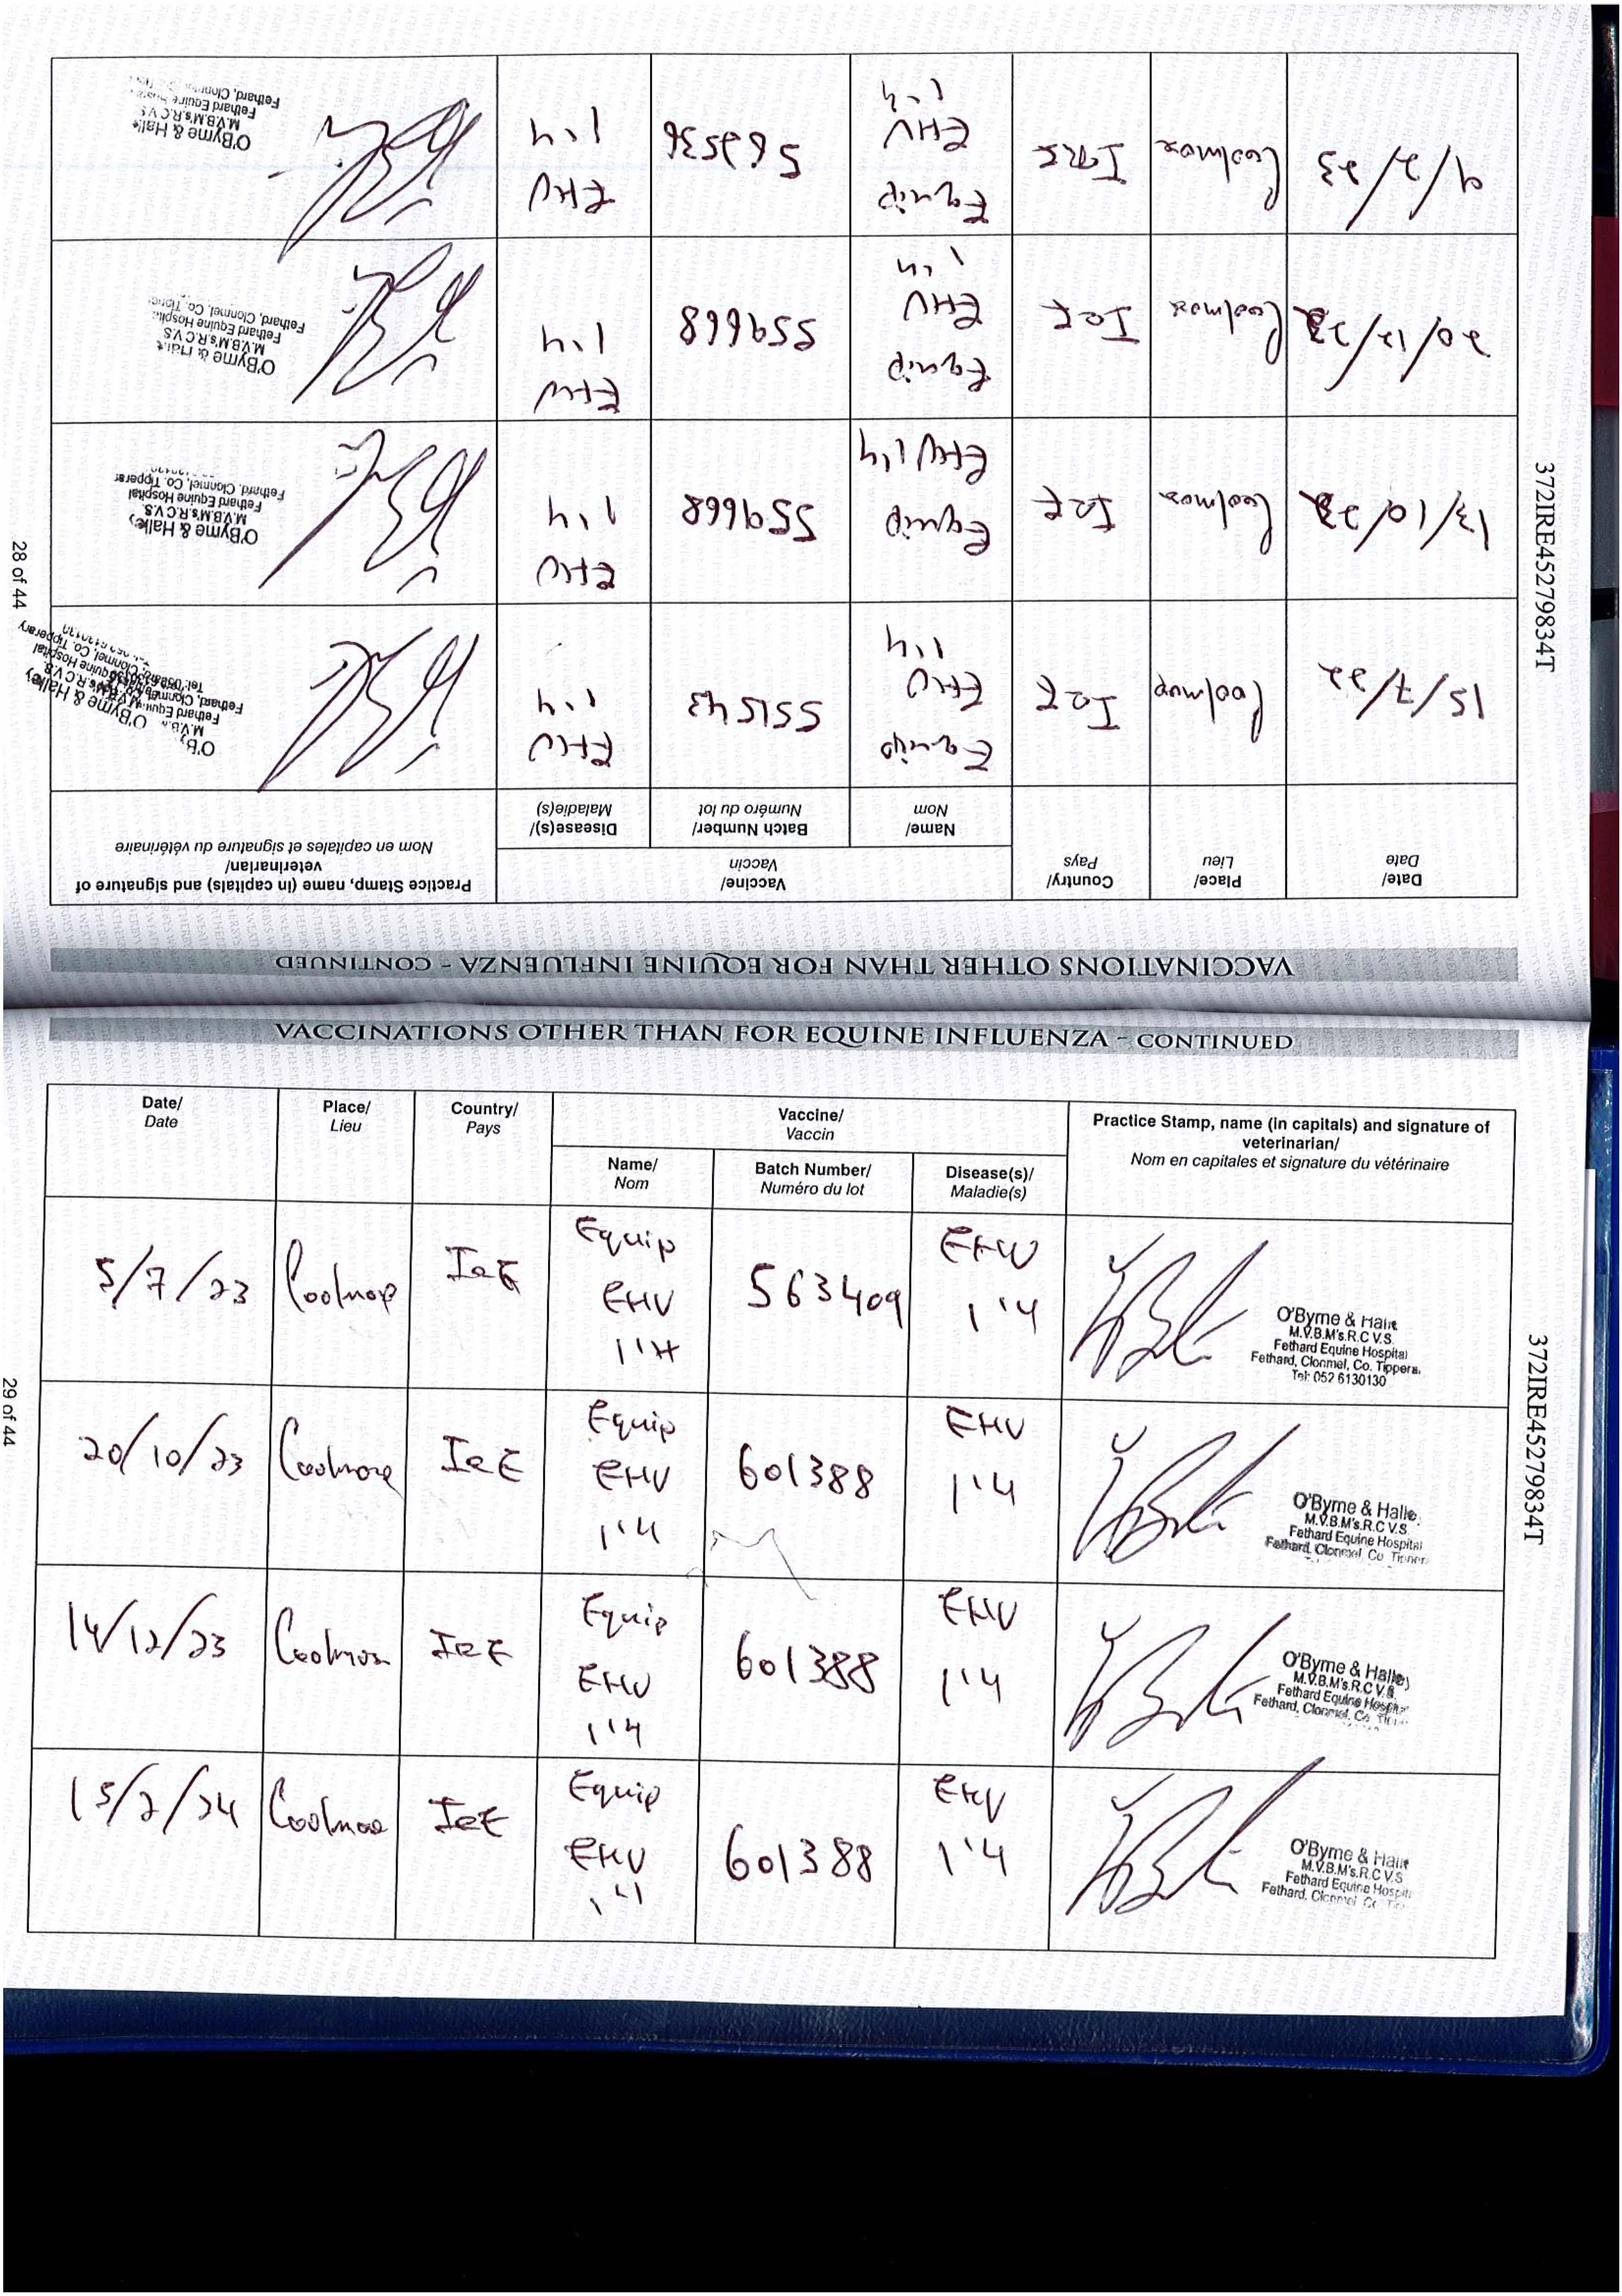 VACCINATIONS OTHER THAN FOR EQUINE INFLUENZA - CONTINUED
Date/
Date
Place/
Lieu
Country/
Pays
Vaccine/
Vaccin
Practice Stamp, name (in capitals) and signature of
veterinarian/
Nom en capitales et signature du vétérinaire
Name/
Nom
Batch Number/
Numéro du lot
Disease(s)/
Maladie(s)
15/7/22
Coolmore
IRE
Equip
EHV
1,4
551543
EHV
1,4
O'Byrne & Halley
M.V.B.M's.R.C.V.S.
Fethard Equine Hospital
Fethard, Clonmel, Co. Tipperary
13/10/22
Coolmore
IRE
Equip
EHV 1,4
559668
EHV
1,4
O'Byrne & Halley
M.V.B.M's.R.C.V.S.
Fethard Equine Hospital
Fethard, Clonmel, Co. Tipperar
20/12/22
Coolmore
IRE
Equip
EHV
1,4
559668
EHV
1,4
O'Byrne & Halle
M.V.B.M's.R.C.V.S
Fethard Equine Hospita
Fethard, Clonmel, Co. Tipper
9/2/23
Coolmore
IRE
Equip
EHV
1,4
EHV
1,4
O'Byrne & Halle
M.V.B.M's.R.C.V.S
Fethard Equine Hospita
Fethard, Clonmel
28 of 44
372IRE45279834T
VACCINATIONS OTHER THAN FOR EQUINE INFLUENZA - CONTINUED
Date/
Date
Place/
Lieu
Country/
Pays
Vaccine/
Vaccin
Practice Stamp, name (in capitals) and signature of
veterinarian/
Nom en capitales et signature du vétérinaire
Name/
Nom
Batch Number/
Numéro du lot
Disease(s)/
Maladie(s)
5/7/23
Coolmore
IRE
Equip
EHV
1,4
563409
EHV
1,4
O'Byrne & Halle
M.V.B.M's.R.C V.S.
Fethard Equine Hospital
Fethard, Clonmel, Co. Tippera
Tel: 052 6130130
20/10/23
Coolmore
IRE
Equip
EHV
1,4
601388
EHV
1,4
O'Byrne & Halle
M.V.B.M's.R.C V.S
Fethard Equine Hospital
Fethard, Clonmel, Co Tipper
14/12/23
Coolmore
IRE
Equip
EHV
1,4
601388
EHV
1,4
O'Byrne & Halley
M.V.B.M's.R.C V.S.
Fethard Equine Hospita
Fethard, Clonmel, Co Tip
15/2/24
Coolmore
IRE
Equip
EHV
1,4
601388
EHV
1,4
O'Byrne & Halle
M.V.B.M's.R.C V.S
Fethard Equine Hospit
Fethard, Clonmel Co Tip
29 of 44
372IRE45279834T